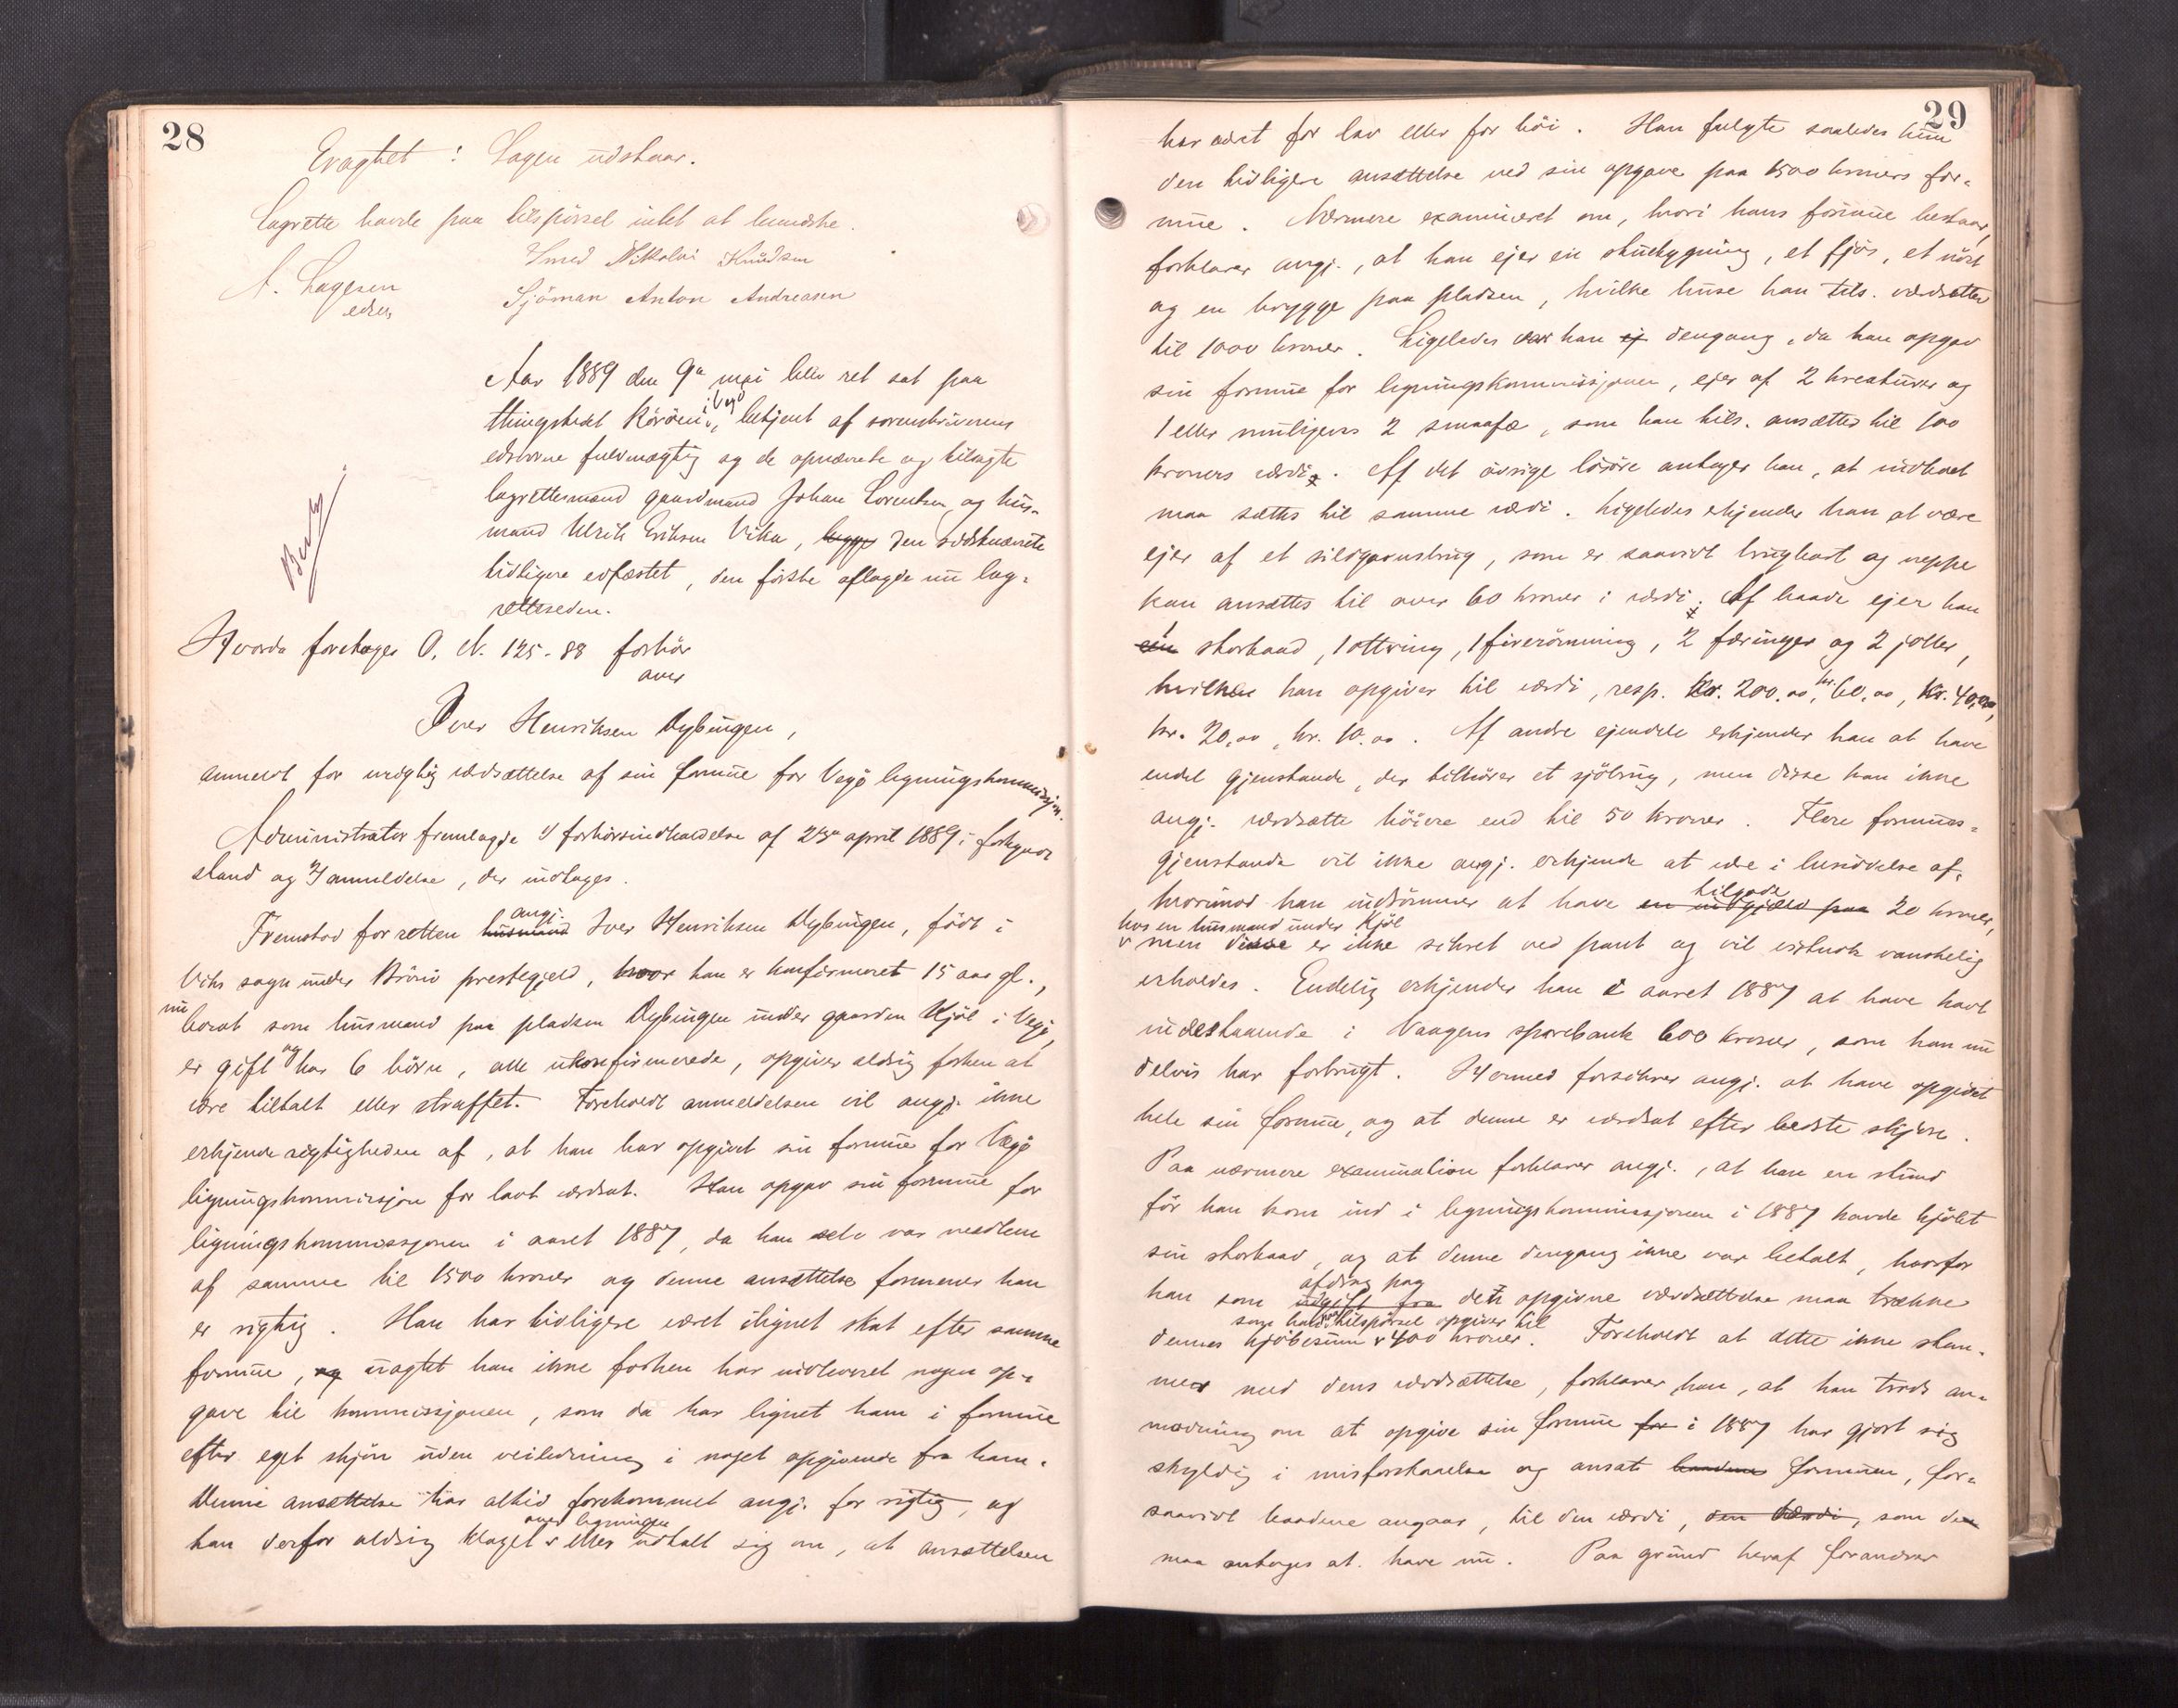 28
Eragtet: Sagen udstaar.
Lagrette havde paa tilspørsel intet at bemærke.
A. Lagesen
edsv
Smed Nikolai Knudsen
Sjöman Anton Andreasen
Aar 1889 den 9de mai blev ret sat paa
thingstedet Röröen i Vegö, betjent af sorenskriverens
edsvorne fuldmægtig og de opnævnte og tilsagte
lagrettesmænd gaardmand Johan Lorentsen og hus-
mand Ulrik Eriksen Vika, begge den sidstnævnte
tidligere edfæstet, den første aflagde nu lag-
retteseden.
Hvorda foretoges O. N. 125-88 forhör
over
Iver Henriksen Dybingen,
anmeldt for urigtig værdsættelse af sin formue for Vegö ligningskommissjon.
Administrator fremlagde 1) forhörsindkaldelse af 23de april 1889 i forkyndt
stand og 2) anmeldelse, der indtages.
Fremstod for retten husmand angj. Iver Henriksen Dybingen, födt i
Viks sogn under Brönö prestegjeld, hvor han er konfirmeret 15 aar gl.,
nu boende som husmand paa pladsen Dybingen under gaarden Kjöl i Vegö,
er gift og har 6 börn, alle ukonfirmerede, opgiver aldrig forhen at
være tiltalt eller straffet. Foreholdt anmeldelsen vil angj. ikke
erkjende rigtigheden af, at han har opgivet sin formue for Vegö
ligningskommissjon for lavt værdsat. Han opgav sin formue for
ligningskommissjonen i aaret 1887, da han selv var medlem
af samme til 1500 kroner og denne ansættelse formener han
er rigtig. Han har tidligere været ilignet skat efter samme
formue, og uagtet han ikke forhen har indleveret nogen op-
gave til kommissjonen, som da har lignet ham i formue
efter eget skjön uden veiledning i noget opgivende fra ham.
Denne ansættelse har altid forekommet angj. for rigtig, og
han derfor aldrig klaget over ligningen eller udtalt sig om, at ansættelsen
29
har været for lav eller for höi. Han fulgte saaledes kun
den tidligere ansættelse ved sin opgave paa 1500 kroners for-
mue. Nærmere examineret om, hvori hans formue bestaar,
forklarer angj., at han ejer en stuebygning, et fjös, et nöst
og en brygge paa pladsen, hvilke huse han tils. værdsætter
til 1000 kroner. Ligeledes var han ej dengang, da han opgav
sin formue for ligningskommissjonen, ejer af 2 kreaturer og
1 eller muligens 2 smaafæ, som han tils. ansætter til 100
kroners værdi. Af det övrige lösöre antager han, at indboet
maa sættes til samme værdi. Ligeledes erkjender han at være
ejer af et sildgarnsbrug, som er saavidt brugbart og neppe
kan ansættes til over 60 kroner i værdi. Af baade ejer han
en 1 storbaad, 1 ottring, 1 firerömming, 2 færinger og 2 joller,
hvilke han opgiver til værdi, resp. kr. 200,00, kr. 60,00, kr. 40,00,
kr. 20,00, kr. 10,00. Af andre ejendele erkjender han at have
endel gjenstande, der tilhörer et sjöbrug, men disse kan ikke
angj. værdsætte höiere end til 50 kroner. Flere formues-
gjenstande vil ikke angj. erkjende at være i besiddelse af,
hvorimod han indrömmer at have en indgjæld paa tilgode 20 kroner,
hos en husmand under Kjöl
men disse er ikke sikret ved pant og vil vistnok vanskelig
erholdes. Endelig erkjender han i aaret 1887 at have havt
indestaaende i Vaagens sparebank 600 kroner, som han nu
delvis har forbrugt. Hermed forsikrer angj. at have opgivet
hele sin formue, og at denne er værdsat efter bedste skjön.
Paa nærmere examination forklarer angj., at han en stund
för han kom ind i ligningskommissjonen i 1887 havde kjöbt
sin storbaad, og at denne dengang ikke var betalt, hvorfor
han som udgift fra afdrag paa den opgivne værdsættelse maa trække
dennes kjöbesum som han paa tilspörsel opgiver til 400 kroner. Foreholdt at dette ikke stem-
mer med dens værdsættelse, forklarer han, at han trods an-
modning om at opgive sin formue for i 1887 har gjort sig
skyldig i misforstaaelse og ansat baadene formuen, for-
saavidt baadene angaar, til den værdi, den værdi, som den
maa antages at have nu. Paa grund heraf forandrer